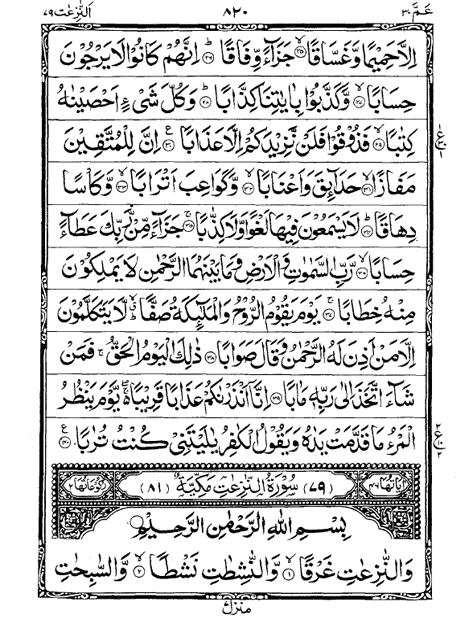 عَمَّ ۳۰ ۸۲۰ النّٰزِعٰت ۷۹
اِلَّا حَمِيْمًا وَّغَسَّاقًا ۙ﴿۲۵﴾ جَزَآءً وِّفَاقًا ؕ﴿۲۶﴾ اِنَّهُمْ كَانُوْا لَا يَرْجُوْنَ
حِسَابًا ۙ﴿۲۷﴾ وَّكَذَّبُوْا بِاٰيٰتِنَا كِذَّابًا ؕ﴿۲۸﴾ وَكُلَّ شَیْءٍ اَحْصَيْنٰهُ
كِتٰبًا ۙ﴿۲۹﴾ فَذُوْقُوْا فَلَنْ نَّزِيْدَكُمْ اِلَّا عَذَابًا ﴿۳۰﴾ اِنَّ لِلْمُتَّقِيْنَ
مَفَازًا ۙ﴿۳۱﴾ حَدَآئِقَ وَاَعْنَابًا ۙ﴿۳۲﴾ وَّكَوَاعِبَ اَتْرَابًا ۙ﴿۳۳﴾ وَّكَاْسًا
دِهَاقًا ؕ﴿۳۴﴾ لَا يَسْمَعُوْنَ فِيْهَا لَغْوًا وَّلَا كِذّٰبًا ۚ﴿۳۵﴾ جَزَآءً مِّنْ رَّبِّكَ عَطَآءً
حِسَابًا ۙ﴿۳۶﴾ رَّبِّ السَّمٰوٰتِ وَالْاَرْضِ وَمَا بَيْنَهُمَا الرَّحْمٰنِ لَا يَمْلِكُوْنَ
مِنْهُ خِطَابًا ۚ﴿۳۷﴾ يَوْمَ يَقُوْمُ الرُّوْحُ وَالْمَلٰٓئِكَةُ صَفًّا ۙۗ لَّا يَتَكَلَّمُوْنَ
اِلَّا مَنْ اَذِنَ لَهُ الرَّحْمٰنُ وَقَالَ صَوَابًا ﴿۳۸﴾ ذٰلِكَ الْيَوْمُ الْحَقُّ ۚ فَمَنْ
شَآءَ اتَّخَذَ اِلٰى رَبِّهٖ مَاٰبًا ﴿۳۹﴾ اِنَّآ اَنْذَرْنٰكُمْ عَذَابًا قَرِيْبًا ۚۖ يَّوْمَ يَنْظُرُ
الْمَرْءُ مَا قَدَّمَتْ يَدٰهُ وَيَقُوْلُ الْكٰفِرُ يٰلَيْتَنِيْ كُنْتُ تُرٰبًا ﴿۴۰﴾
اٰيَاتُهَا ۴۶ (۷۹) سُوْرَةُ النّٰزِعٰتِ مَكِّيَّةٌ (۸۱) رُكُوْعَاتُهَا ۲
بِسْمِ اللّٰهِ الرَّحْمٰنِ الرَّحِيْمِ
وَالنّٰزِعٰتِ غَرْقًا ۙ﴿۱﴾ وَّالنّٰشِطٰتِ نَشْطًا ۙ﴿۲﴾ وَّالسّٰبِحٰتِ
منزل